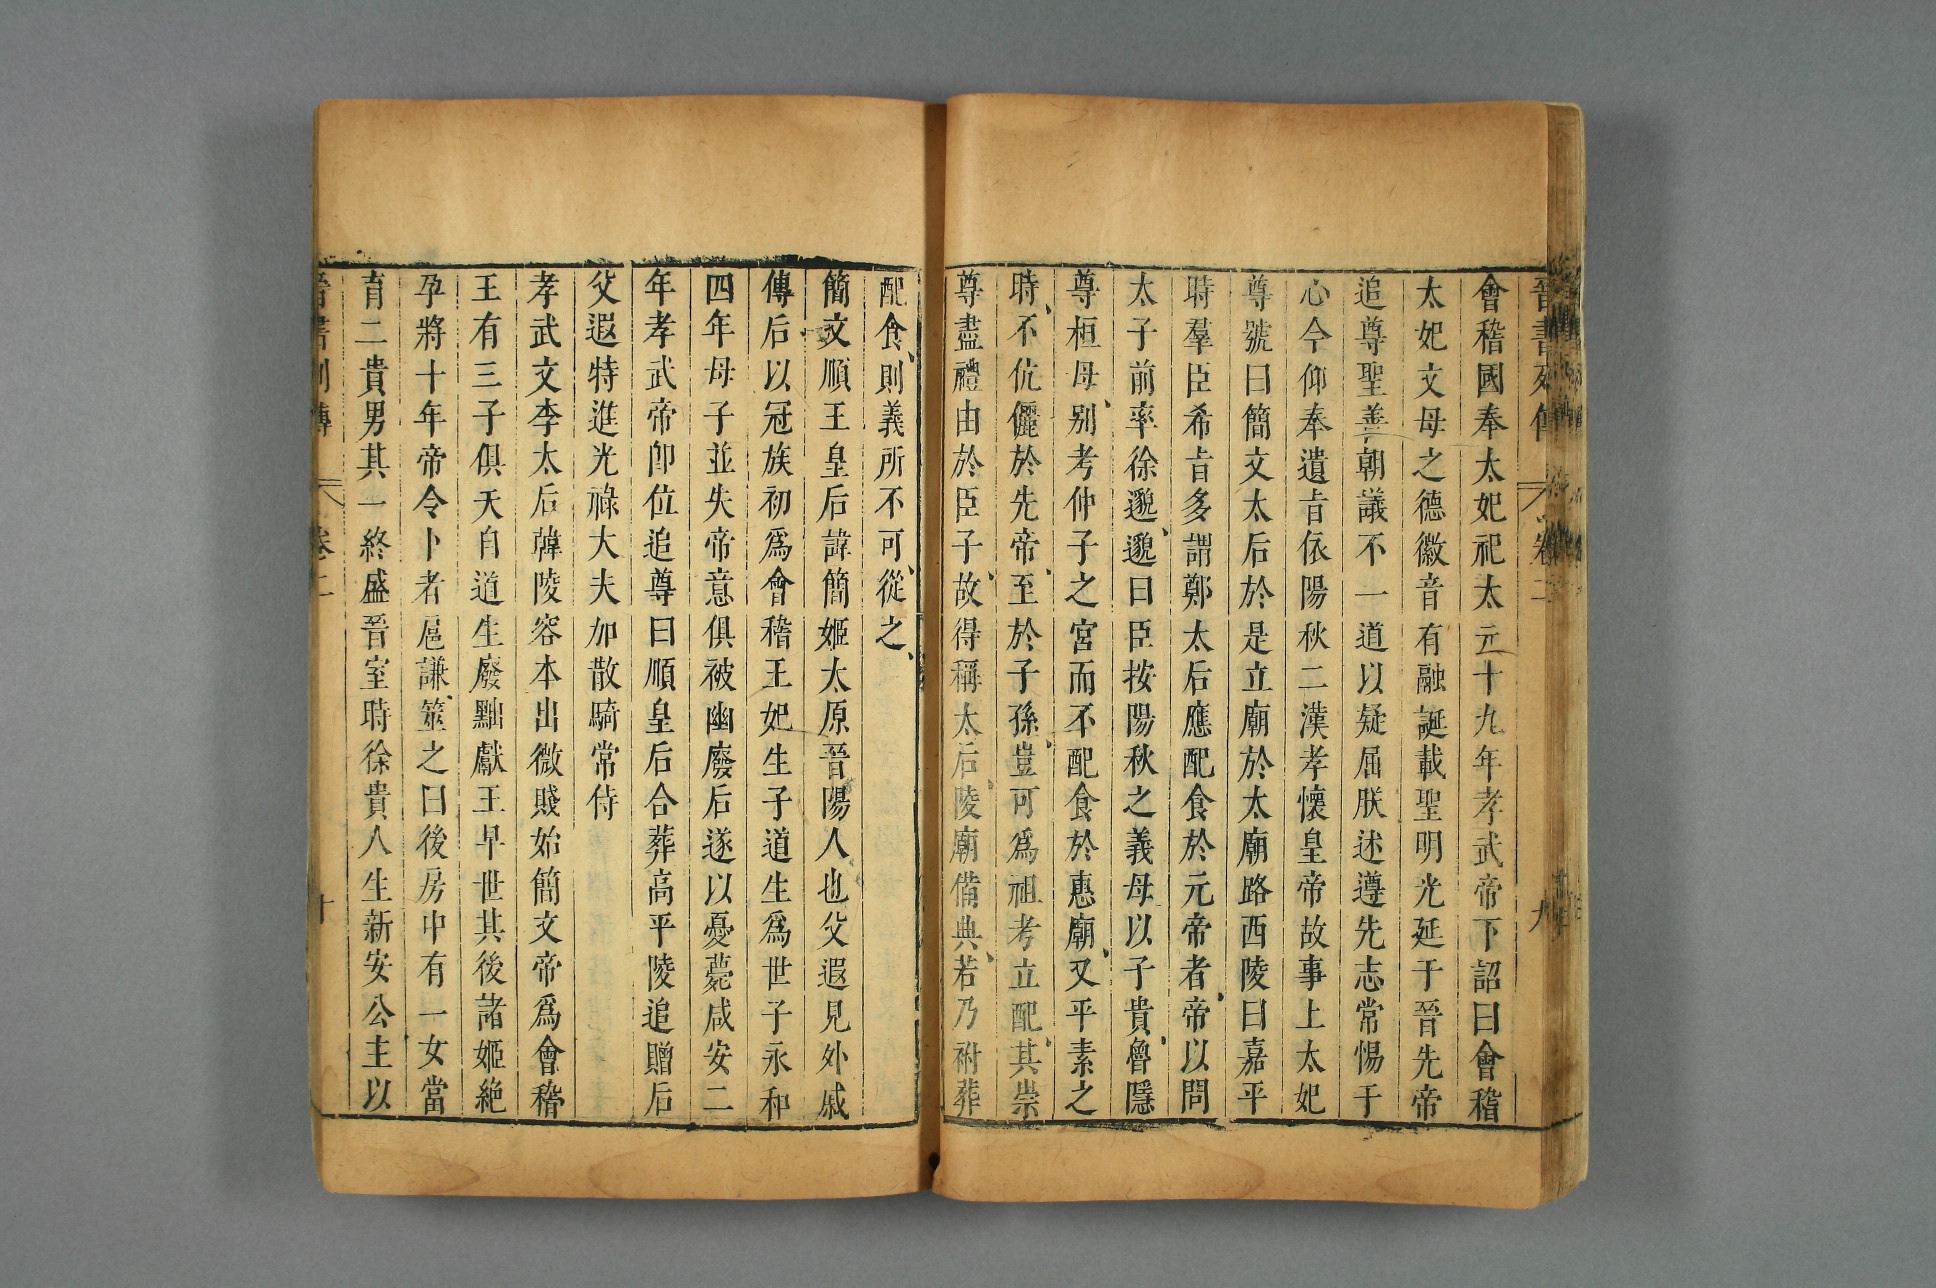 晉書列傳 卷二 九
會稽國奉太妃祀太元十九年孝武帝下詔曰會稽
太妃文母之德徽音有融誕載聖明光延于晉先帝
追尊聖善朝議不一道以疑屈朕述遵先志常惕于
心今仰奉遺旨依陽秋二漢孝懷皇帝故事上太妃
尊號曰簡文太后於是立廟於太廟路西陵曰嘉平
時羣臣希旨多謂鄭太后應配食於元帝者帝以問
太子前率徐邈邈曰臣按陽秋之義母以子貴魯隱
尊桓母別考仲子之宮而不配食於惠廟又平素之
時不伉儷於先帝至於子孫豈可爲祖考立配其崇
尊盡禮由於臣子故得稱太后陵廟備典若乃祔葬
配食則義所不可從之
簡文順王皇后諱簡姬太原晉陽人也父遐見外戚
傳后以冠族初爲會稽王妃生子道生爲世子永和
四年母子並失帝意俱被幽廢后遂以憂薨咸安二
年孝武帝卽位追尊曰順皇后合葬高平陵追贈后
父遐特進光祿大夫加散騎常侍
孝武文李太后諱陵容本出微賤始簡文帝爲會稽
王有三子俱夭自道生廢黜獻王早世其後諸姬絶
孕將十年帝令卜者扈謙筮之曰後房中有一女當
育二貴男其一終盛晉室時徐貴人生新安公主以
晉書列傳 卷二 十